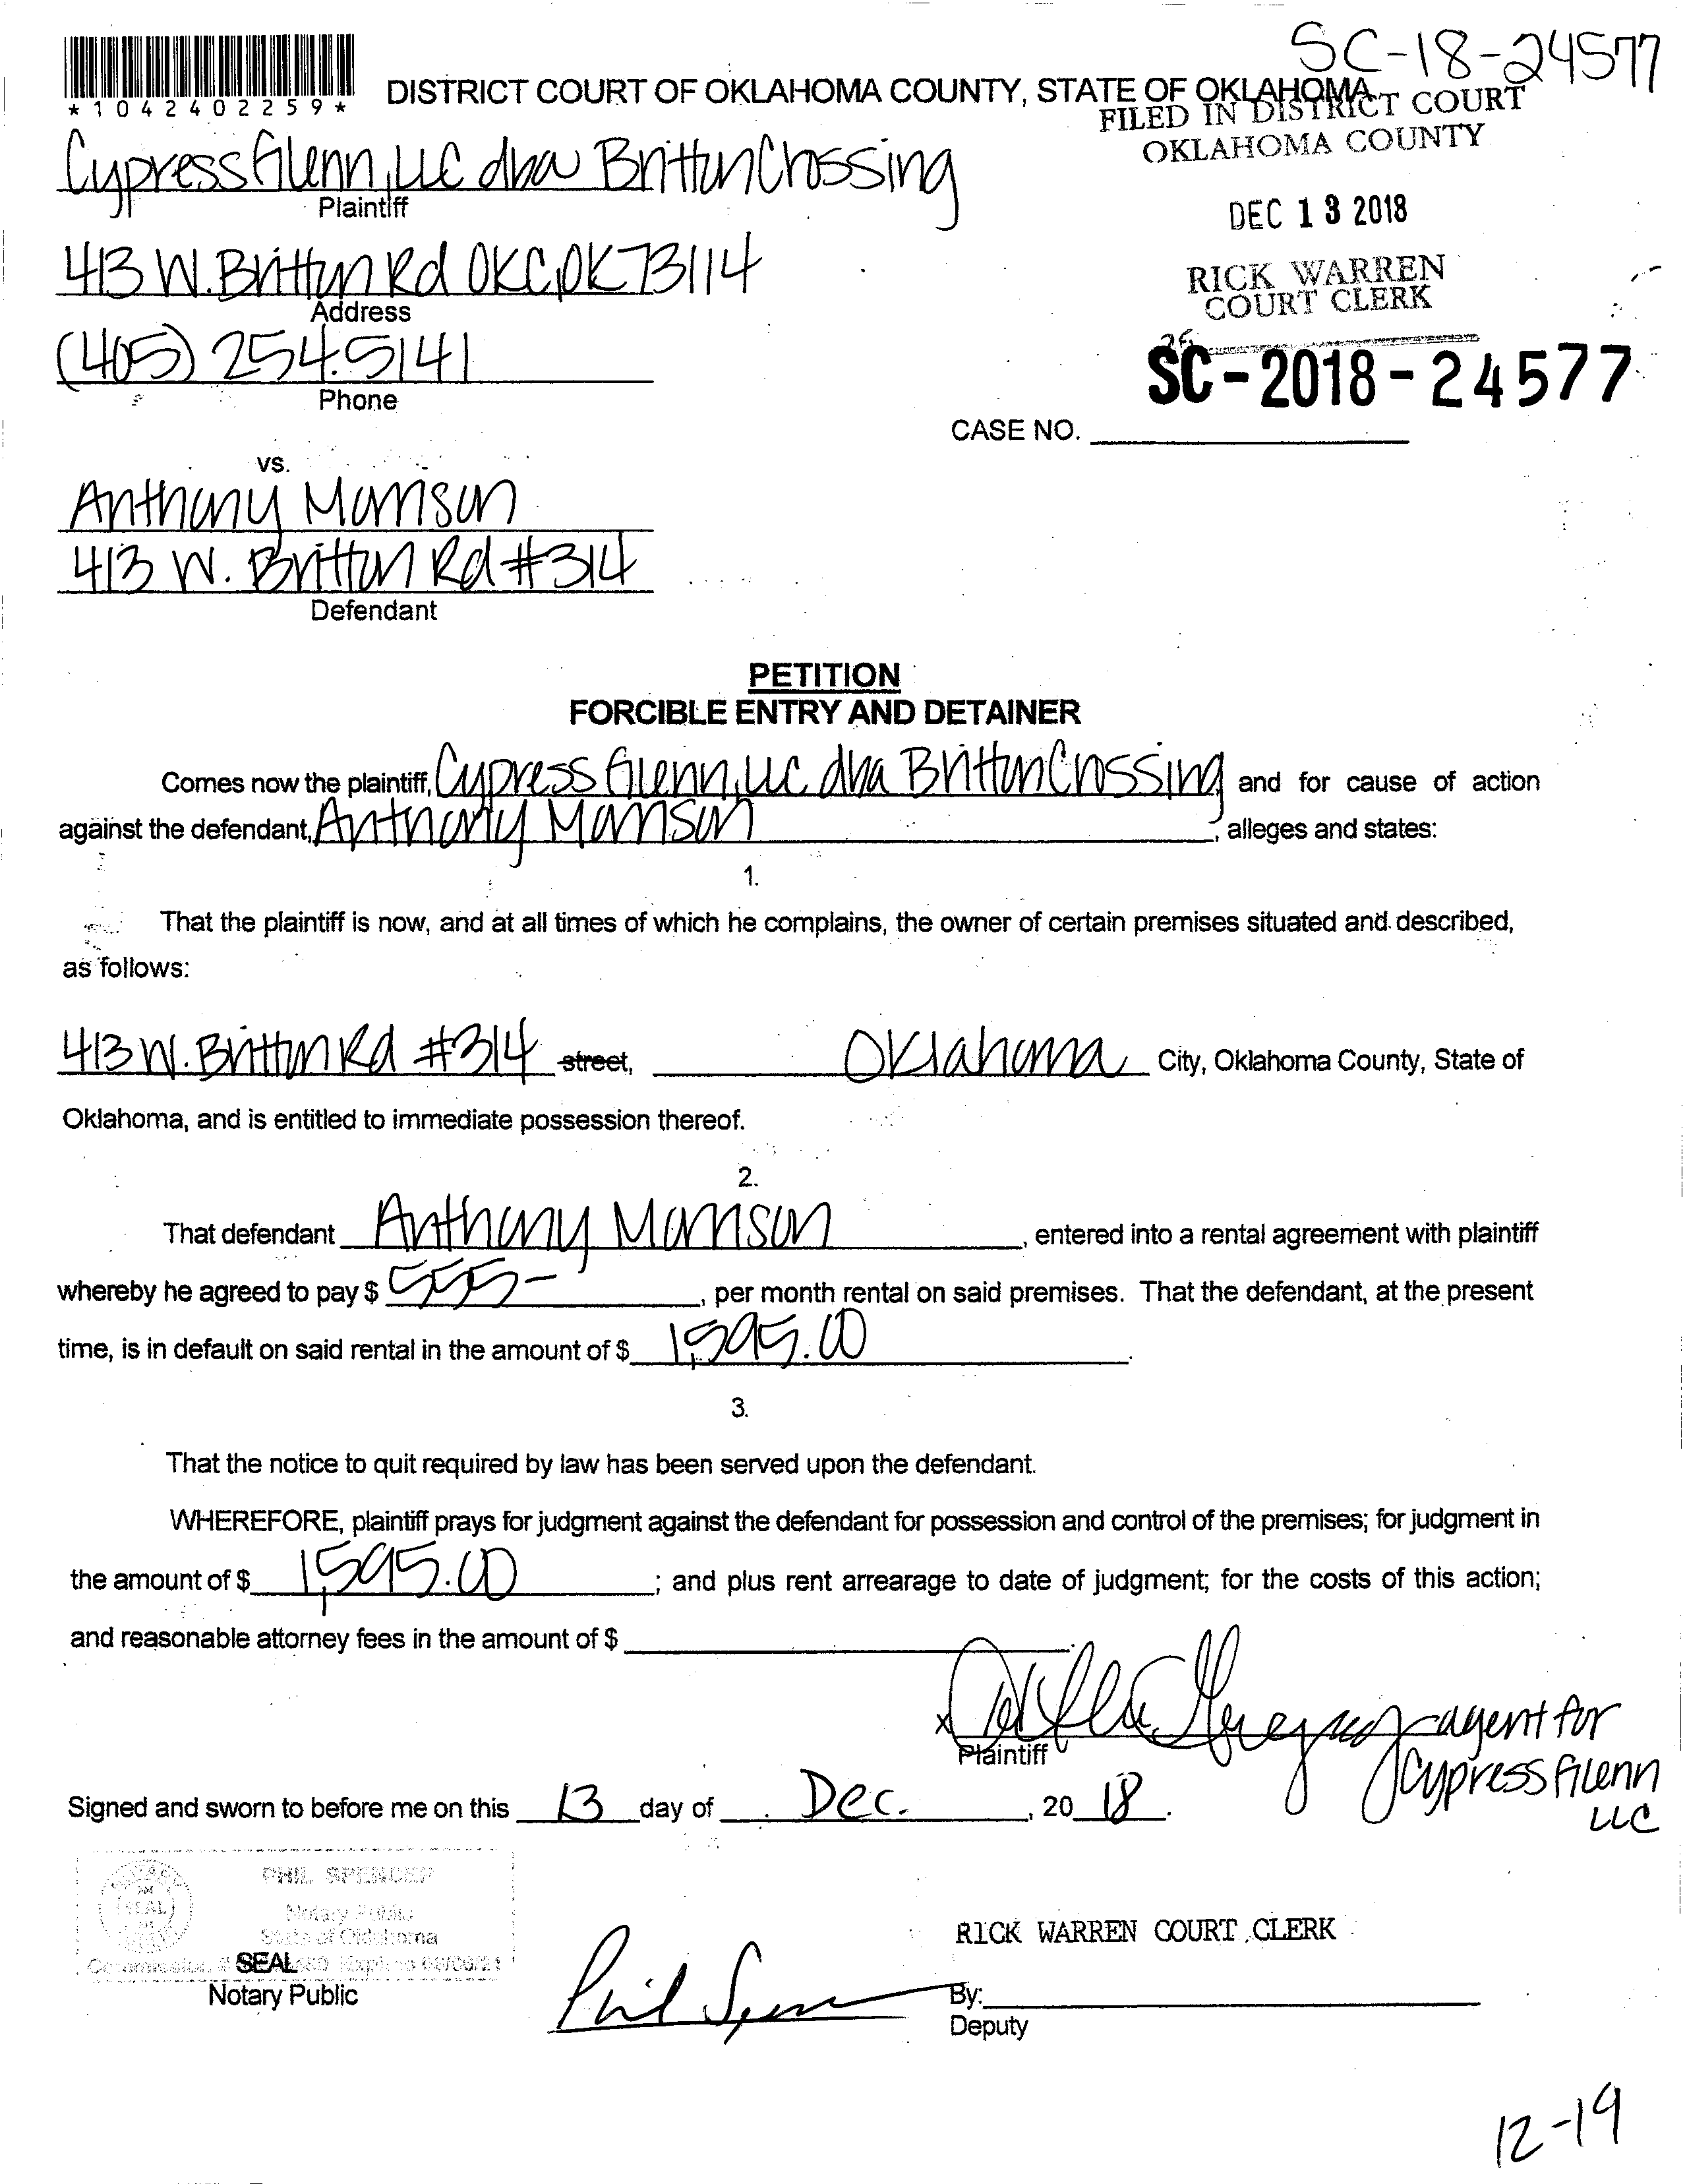 SC-18-24577
*1042402259*
DISTRICT COURT OF OKLAHOMA COUNTY, STATE OF OKLAHOMA
FILED IN DISTRICT COURT
OKLAHOMA COUNTY
Cypress Glenn, LLC dba Britton Crossing
Plaintiff
DEC 13 2018
413 W. Britton Rd OKC, OK 73114
Address
RICK WARREN
COURT CLERK
(405) 254.5141
Phone
SC-2018-24577
CASE NO.
vs.
Anthony Morrison
413 W. Britton Rd #314
Defendant
PETITION
FORCIBLE ENTRY AND DETAINER
Comes now the plaintiff, Cypress Glenn, LLC dba Britton Crossing and for cause of action
against the defendant, Anthony Morrison, alleges and states:
1.
That the plaintiff is now, and at all times of which he complains, the owner of certain premises situated and described,
as follows:
413 W. Britton Rd #314 street, Oklahoma City, Oklahoma County, State of
Oklahoma, and is entitled to immediate possession thereof.
2.
That defendant Anthony Morrison, entered into a rental agreement with plaintiff
whereby he agreed to pay $ 555-, per month rental on said premises. That the defendant, at the present
time, is in default on said rental in the amount of $ 1,595.00.
3.
That the notice to quit required by law has been served upon the defendant.
WHEREFORE, plaintiff prays for judgment against the defendant for possession and control of the premises; for judgment in
the amount of $ 1,595.00; and plus rent arrearage to date of judgment; for the costs of this action;
and reasonable attorney fees in the amount of $.
x agent for
Plaintiff
Cypress Glenn
LLC
Signed and sworn to before me on this 13 day of Dec., 2018.
PHIL SPENCER
Notary Public
State of Oklahoma
SEAL
Notary Public
Phil Spencer
RICK WARREN COURT CLERK
By:
Deputy
12-19